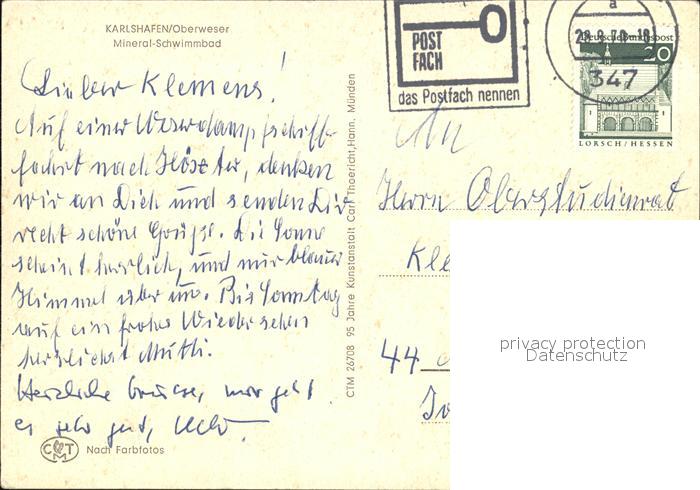 KARLSHAFEN/Oberweser
Mineral-Schwimmbad
Lieber Klemens!
Auf einer Weserdampfschiff-
fahrt nach Höxter, denken
wir an Dich und senden Dir
recht schöne Grüße. Die Sonne
scheint herrlich, und nur blauer
Himmel über uns. Bis Sonntag
auf ein frohes Wiedersehen
herzlichst Mutti.
Herzliche Grüsse, mir geht
es sehr gut,
CMT
Nach Farbfotos
CTM 26708 95 Jahre Kunstanstalt Carl Thoericht, Hann. Münden
POST
FACH
das Postfach nennen
a
347
Deutsche Bundespost
20
LORSCH/HESSEN
An
Herrn Oberstudienrat
Kle
44
privacy protection
Datenschutz